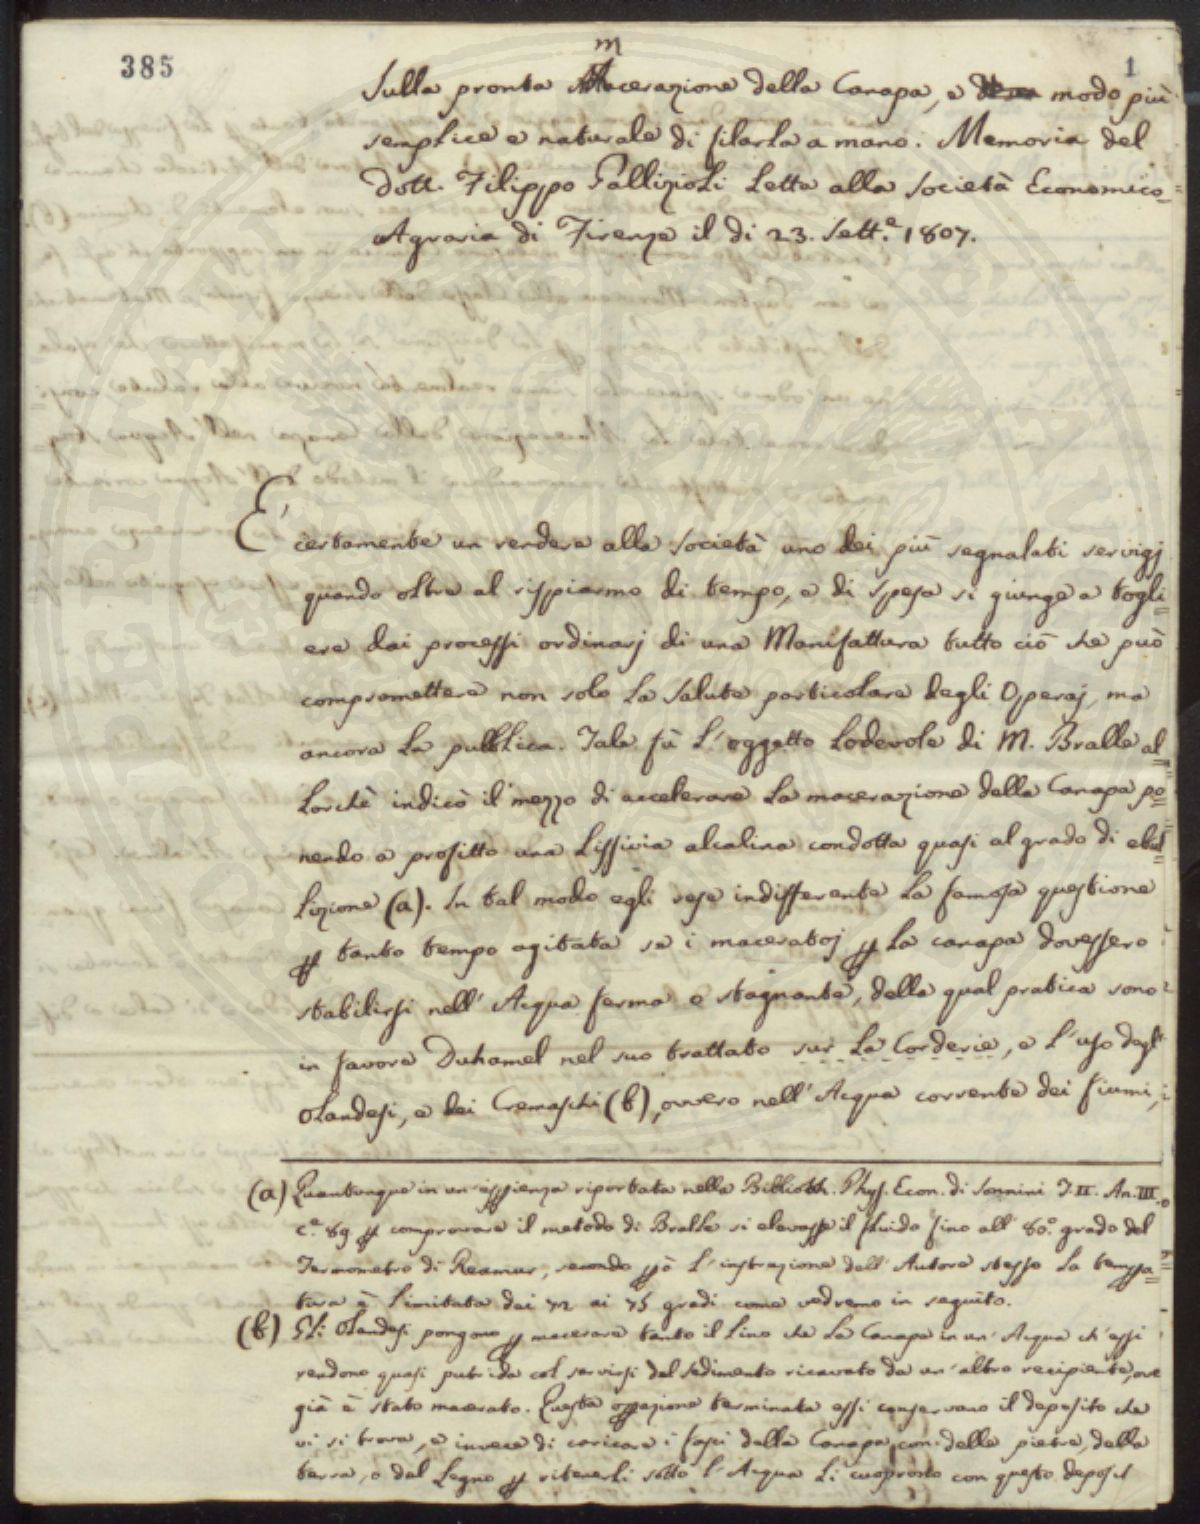 385
1
m
Sulla pronta Macerazione della Canapa, e modo più
semplice e naturale di filarla a mano. Memoria del
Dott. Filippo Gallizioli Letta alla Società Economico=
Agraria di Firenze il di 23. Sett.e 1807.
E' certamente un rendere alla Società uno dei più segnalati servigj
quando oltre al risparmio di tempo, e di spesa si giunge a togli=
ere dai processi ordinarj di una Manifattura tutto ciò che può
compromettere non solo la Salute particolare degli Operaj, ma
ancora la pubblica. Tale fù l'oggetto Lodevole di M. Bralle al=
lorchè indicò il mezzo di accelerare la macerazione della Canapa po=
nendo a profitto una Lissivia alcalina condotta quasi al grado di ebul=
lizione (a). In tal modo egli rese indifferente la famosa questione
p tanto tempo agitata se i maceratoj p la canapa dovessero
stabilirsi nell'Acqua ferma e stagnante, della qual pratica sono
in favore Duhamel nel suo trattato sur la Corderie, e l'uso degli
Olandesi, e dei Cremaschi (b), ovvero nell'Acqua corrente dei fiumi,
(a) Quantunque in un'esperienza riportata nella Biblioth. Phys. Econ. di Sonnini T. II. An. III.
c.e 89 p comprovare il metodo di Bralle si elevasse il fluido fino all'80.° grado del
Termometro di Reamur, secondo pò l'instrazione dell'Autore stesso la tempa=
tura è limitata dai 72 ai 75 gradi come vedremo in seguito.
(b) Gli Olandesi pongono p macerare tanto il Lino che la Canapa in un'Acqua ch'essi
rendono quasi putrida col servirsi del sedimento ricavato da un'altro recipiente, ove
già è stato macerato. Questa opazione terminata essi conservano il deposito che
vi si trova, e invece di caricare i fasci della Canapa con delle pietre, della
terra, o del Legno p ritenerli sotto l'Acqua li cuoprono con questo deposit